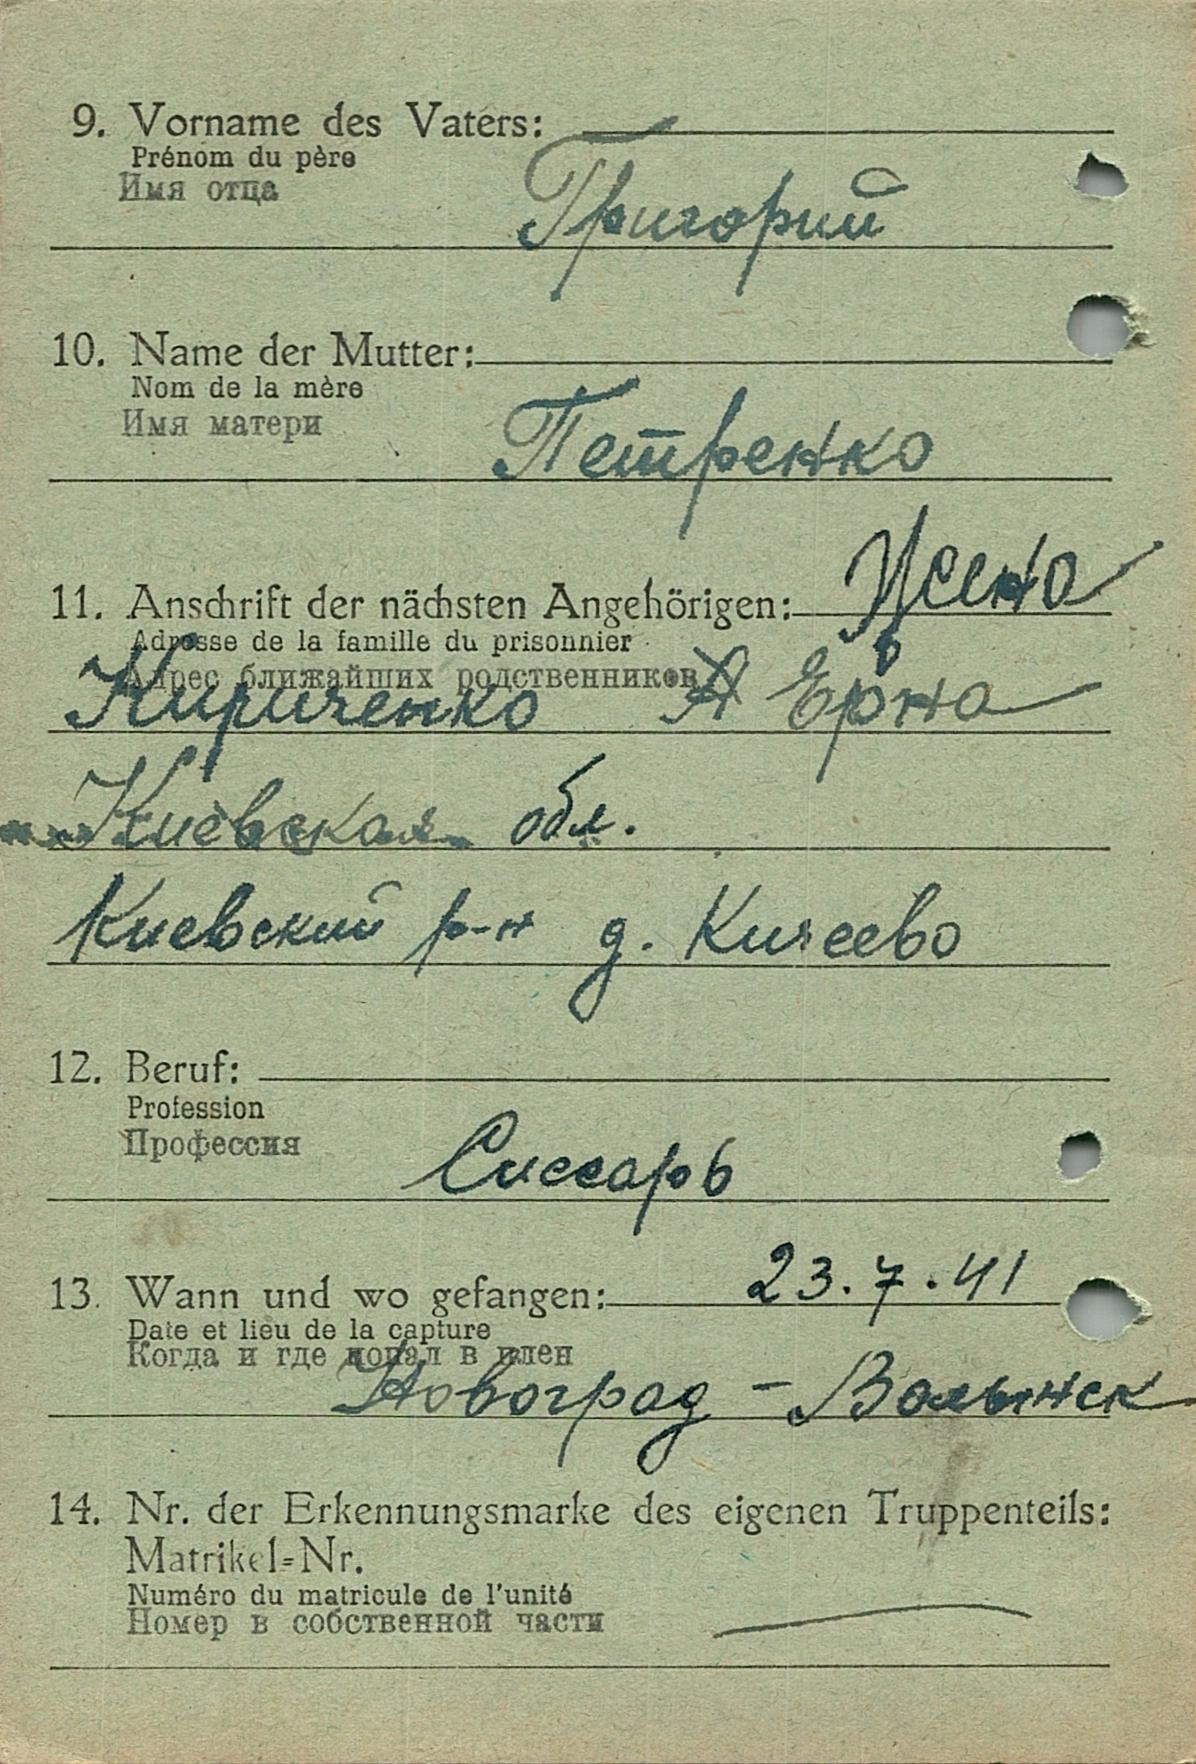 9. Vorname des Vaters:
Prénom du père
Имя отца
Григорий
10. Name der Mutter:
Nom de la mère
Имя матери
Петренко
11. Anschrift der nächsten Angehörigen:
Adresse de la famille du prisonnier
Адрес ближайших родственников
Кириченко
Киевская обл.
Киевский р-н д. Кичеево
12. Beruf:
Profession
Профессия
Сиссарь
13. Wann und wo gefangen: 23.7.41
Date et lieu de la capture
Когда и где попал в плен
Новоград-Волынск
14. Nr. der Erkennungsmarke des eigenen Truppenteils:
Matrikel-Nr.
Numéro du matricule de l'unité
Номер в собственной части